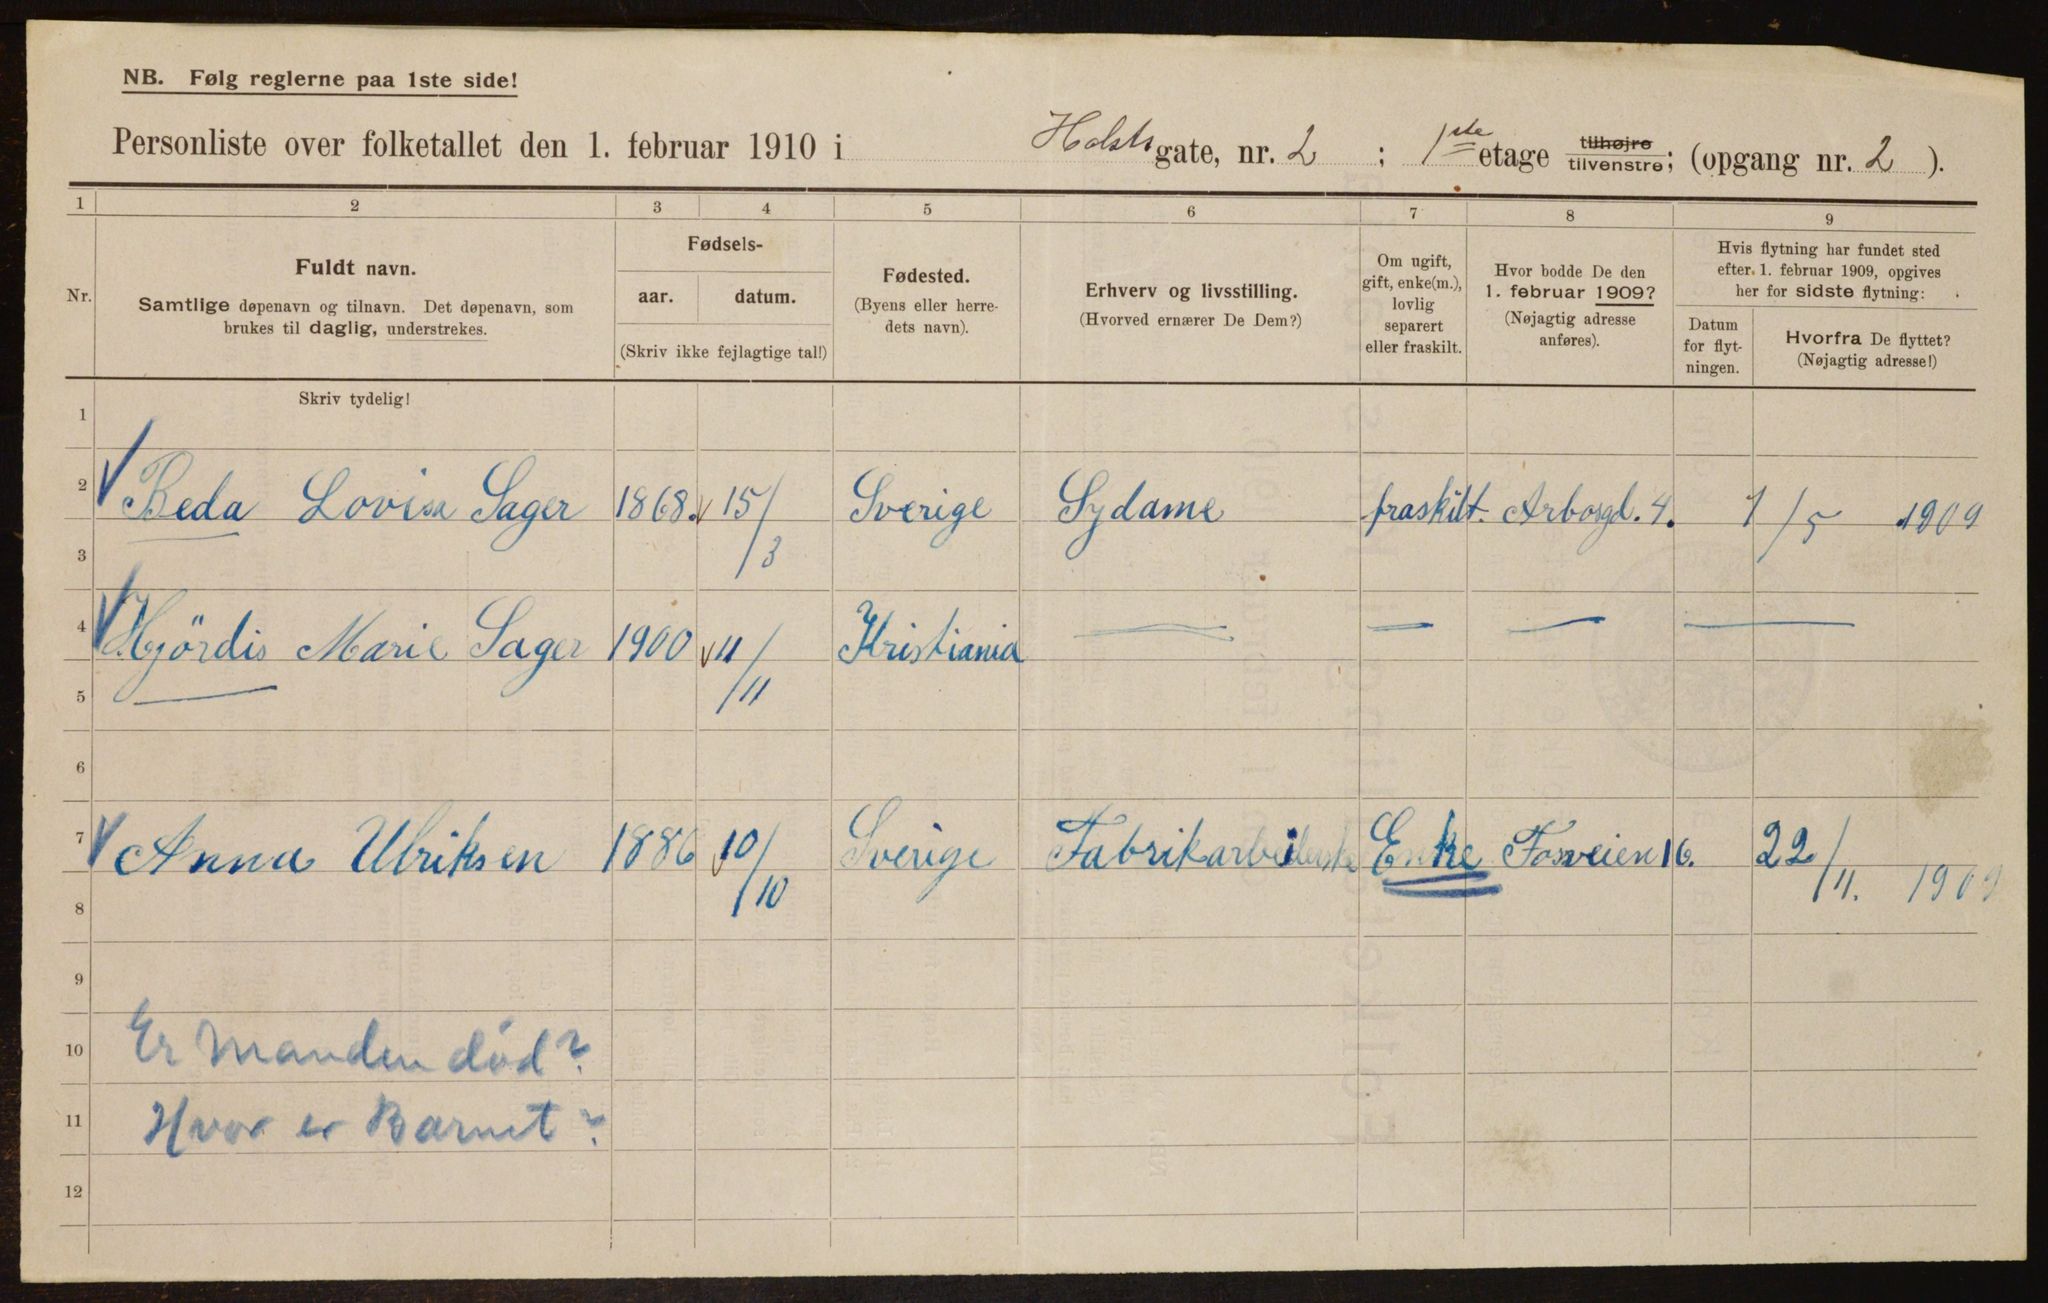 NB. Følg reglerne paa 1ste side!
Personliste over folketallet den 1. februar 1910 i Holsts gate, nr. 2 ; 1ste etage tilhøjre tilvenstre; (opgang nr. 2 ).
1 2 3 4 5 6 7 8 9
Nr.
Fuldt navn.
Samtlige døpenavn og tilnavn. Det døpenavn, som
brukes til daglig, understrekes.
Fødsels-
aar. datum.
(Skriv ikke fejlagtige tal!)
Fødested.
(Byens eller herre-
dets navn).
Erhverv og livsstilling.
(Hvorved ernærer De Dem?)
Om ugift,
gift, enke(m.),
lovlig
separert
eller fraskilt.
Hvor bodde De den
1. februar 1909?
(Nøjagtig adresse
anføres).
Hvis flytning har fundet sted
efter 1. februar 1909, opgives
her for sidste flytning:
Datum
for flyt-
ningen.
Hvorfra De flyttet?
(Nøjagtig adresse!)
Skriv tydelig!
1
2 Beda Lovisa Sager 1868. 15/3 Sverige Sydame fraskilt. Arbosgd. 4. 1/5 1909
3
4 Hjördis Marie Sager 1900 11/11 Kristiania — — — —
5
6
7 Anna Ulriksen 1886 10/10 Sverige Fabrikarbeiderske Enke Fosveien 16. 22/11. 1909
8
9
10 Er Manden död?
11 Hvor er Barnet?
12